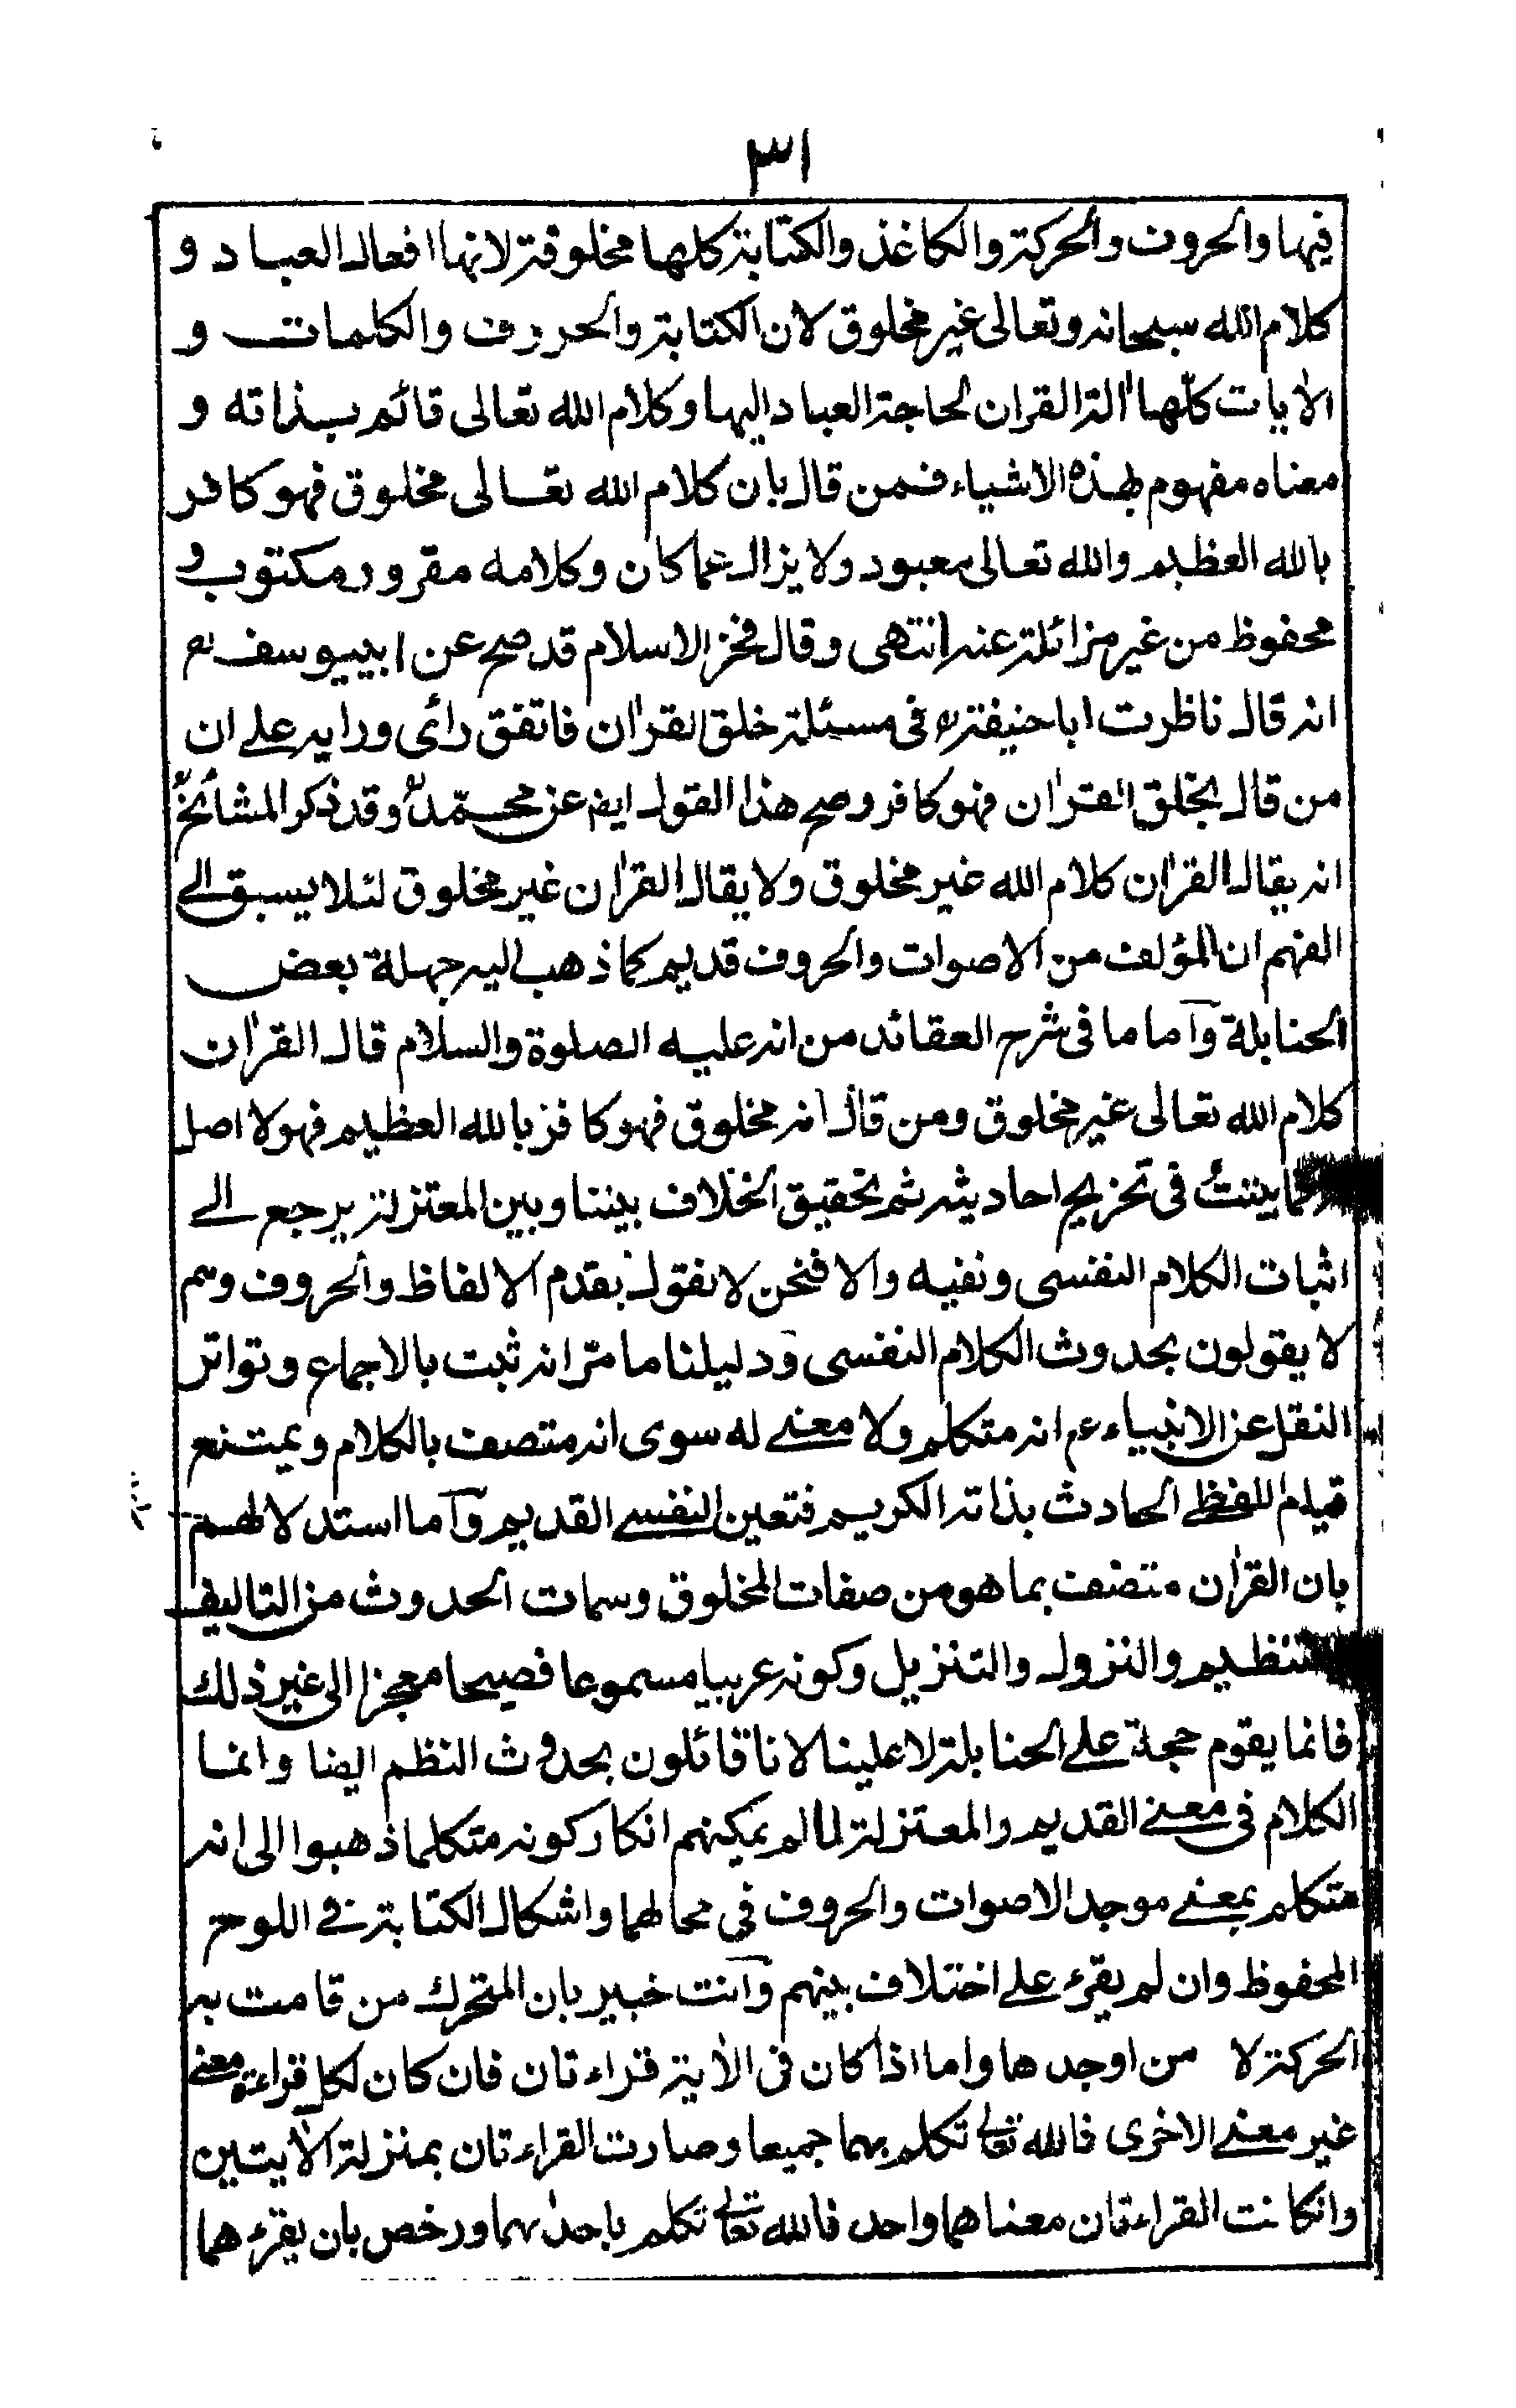 ٣١
فيها والحروف والحركة والكاغذ والكتابة كلها مخلوقة لانها افعال العباد و
كلام الله سبحانه وتعالى غير مخلوق لان الكتابة والحروف والكلمات و
الايات كلها الة القران لحاجة العباد اليها وكلام الله تعالى قائم بذاته و
معناه مفهوم بهذه الاشياء فمن قال بان كلام الله تعالى مخلوق فهو كافر
بالله العظيم والله تعالى معبود ولا يزال عما كان وكلامه مقرو ومكتوب و
محفوظ من غير مزائلة عنه انتهى وقال فخر الاسلام قد صح عن ابي يوسف رح
انه قال ناظرت ابا حنيفة رح فى مسئلة خلق القران فاتفق رائى ورايه على ان
من قال بخلق القران فهو كافر وصح هذا القول ايض عن محمد رح وقد ذكر المشائخ رح
انه يقال القران كلام الله غير مخلوق ولا يقال القران غير مخلوق لئلا يسبق الى
الفهم ان المؤلف من الاصوات والحروف قديم كما ذهب اليه جهلة بعض
الحنابلة وآما ما فى شرح العقائد من انه عليه الصلوة والسلام قال القران
كلام الله تعالى غير مخلوق ومن قال انه مخلوق فهو كافر بالله العظيم فهو لا اصل
كما بينت فى تخريج احاديثه ثم تحقيق الخلاف بيننا وبين المعتزلة يرجع الى
اثبات الكلام النفسى ونفيه والا فنحن لا نقول بقدم الالفاظ والحروف وهم
لا يقولون بحدوث الكلام النفسى ودليلنا ما مر انه ثبت بالاجماع وتواتر
النقل عن الانبياء عم انه متكلم ولا معنى له سوى انه متصف بالكلام ويمتنع
قيام اللفظى الحادث بذاته الكريم فتعين النفسى القديم وآما استدلالهم
بان القران متصف بما هو من صفات المخلوق وسمات الحدوث من التاليف
التنظيم والنزول والتنزيل وكونه عربيا مسموعا فصيحا معجزا الى غير ذلك
فانما يقوم حجة على الحنابلة لا علينا لانا قائلون بحدوث النظم ايضا وانما
الكلام فى معنى القديم والمعتزلة لما لم يمكنهم انكار كونه متكلما ذهبوا الى انه
متكلم بمعنى موجد الاصوات والحروف في محالها واشكال الكتابة فى اللوح
المحفوظ وان لم يقرء على اختلاف بينهم وآنت خبير بان المتحرك من قامت به
الحركة لا من اوجدها واما اذا كان فى الاية قراءتان فان كان لكل قراءة معنى
غير معنى الاخرى فالله تعالى تكلم بهما جميعا وصارت القراءتان بمنزلة الايتين
وانكانت القراءتان معناهما واحد فالله تعالى تكلم باحدٰهما ورخص بان يقرءهما